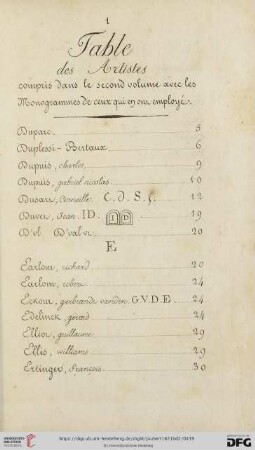 1
Table
des Artistes
compris dans le second volume avec les
Monogrammes de ceux qui en ont employé.
Duparc 5
Duplessi-Bertaux 6
Dupuis, charles 9
Dupuis, gabriel nicolas 10
Dusart, Corneille C. d. S. f. 12
Duvet, Jean ID. I D 19
20
E
Earlom, richard 20
Earlom, robert 24
gerbrandt vanden G.V.D.E. 24
Edelinck, gerard 24
Elliot, guillaume 29
Ellis, williams 29
Ertinger, françois 30
UNIVERSITÄTS-BIBLIOTHEK HEIDELBERG
Gefördert durch die
DFG